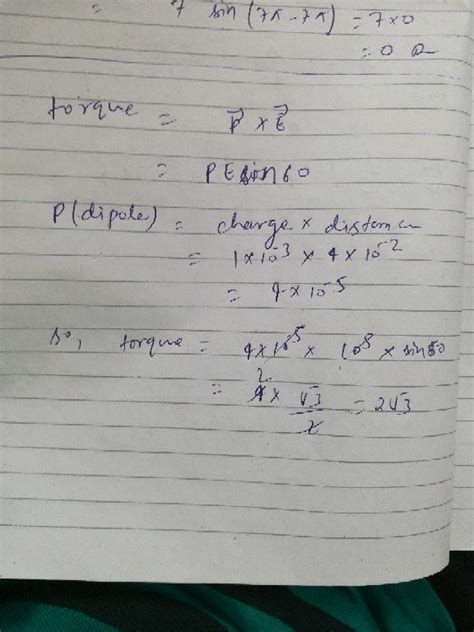 = 7 sin (7π - 7π) = 7×0
= 0
torque = P⃗ × E⃗
= PE sin 60
P (dipole) = charge × distance
= 1×10³ × 4×10⁻²
= 4×10⁻⁵
so, torque = 4×10⁵ × 10⁸ × sin 60
2
= 4× √3/2 = 2√3